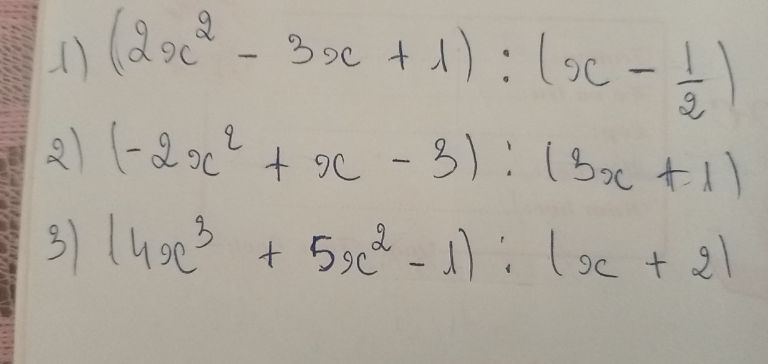 1) (2x² - 3x + 1) : (x - 1/2)
2) (-2x² + x - 3) : (3x + 1)
3) (4x³ + 5x² - 1) : (x + 2)